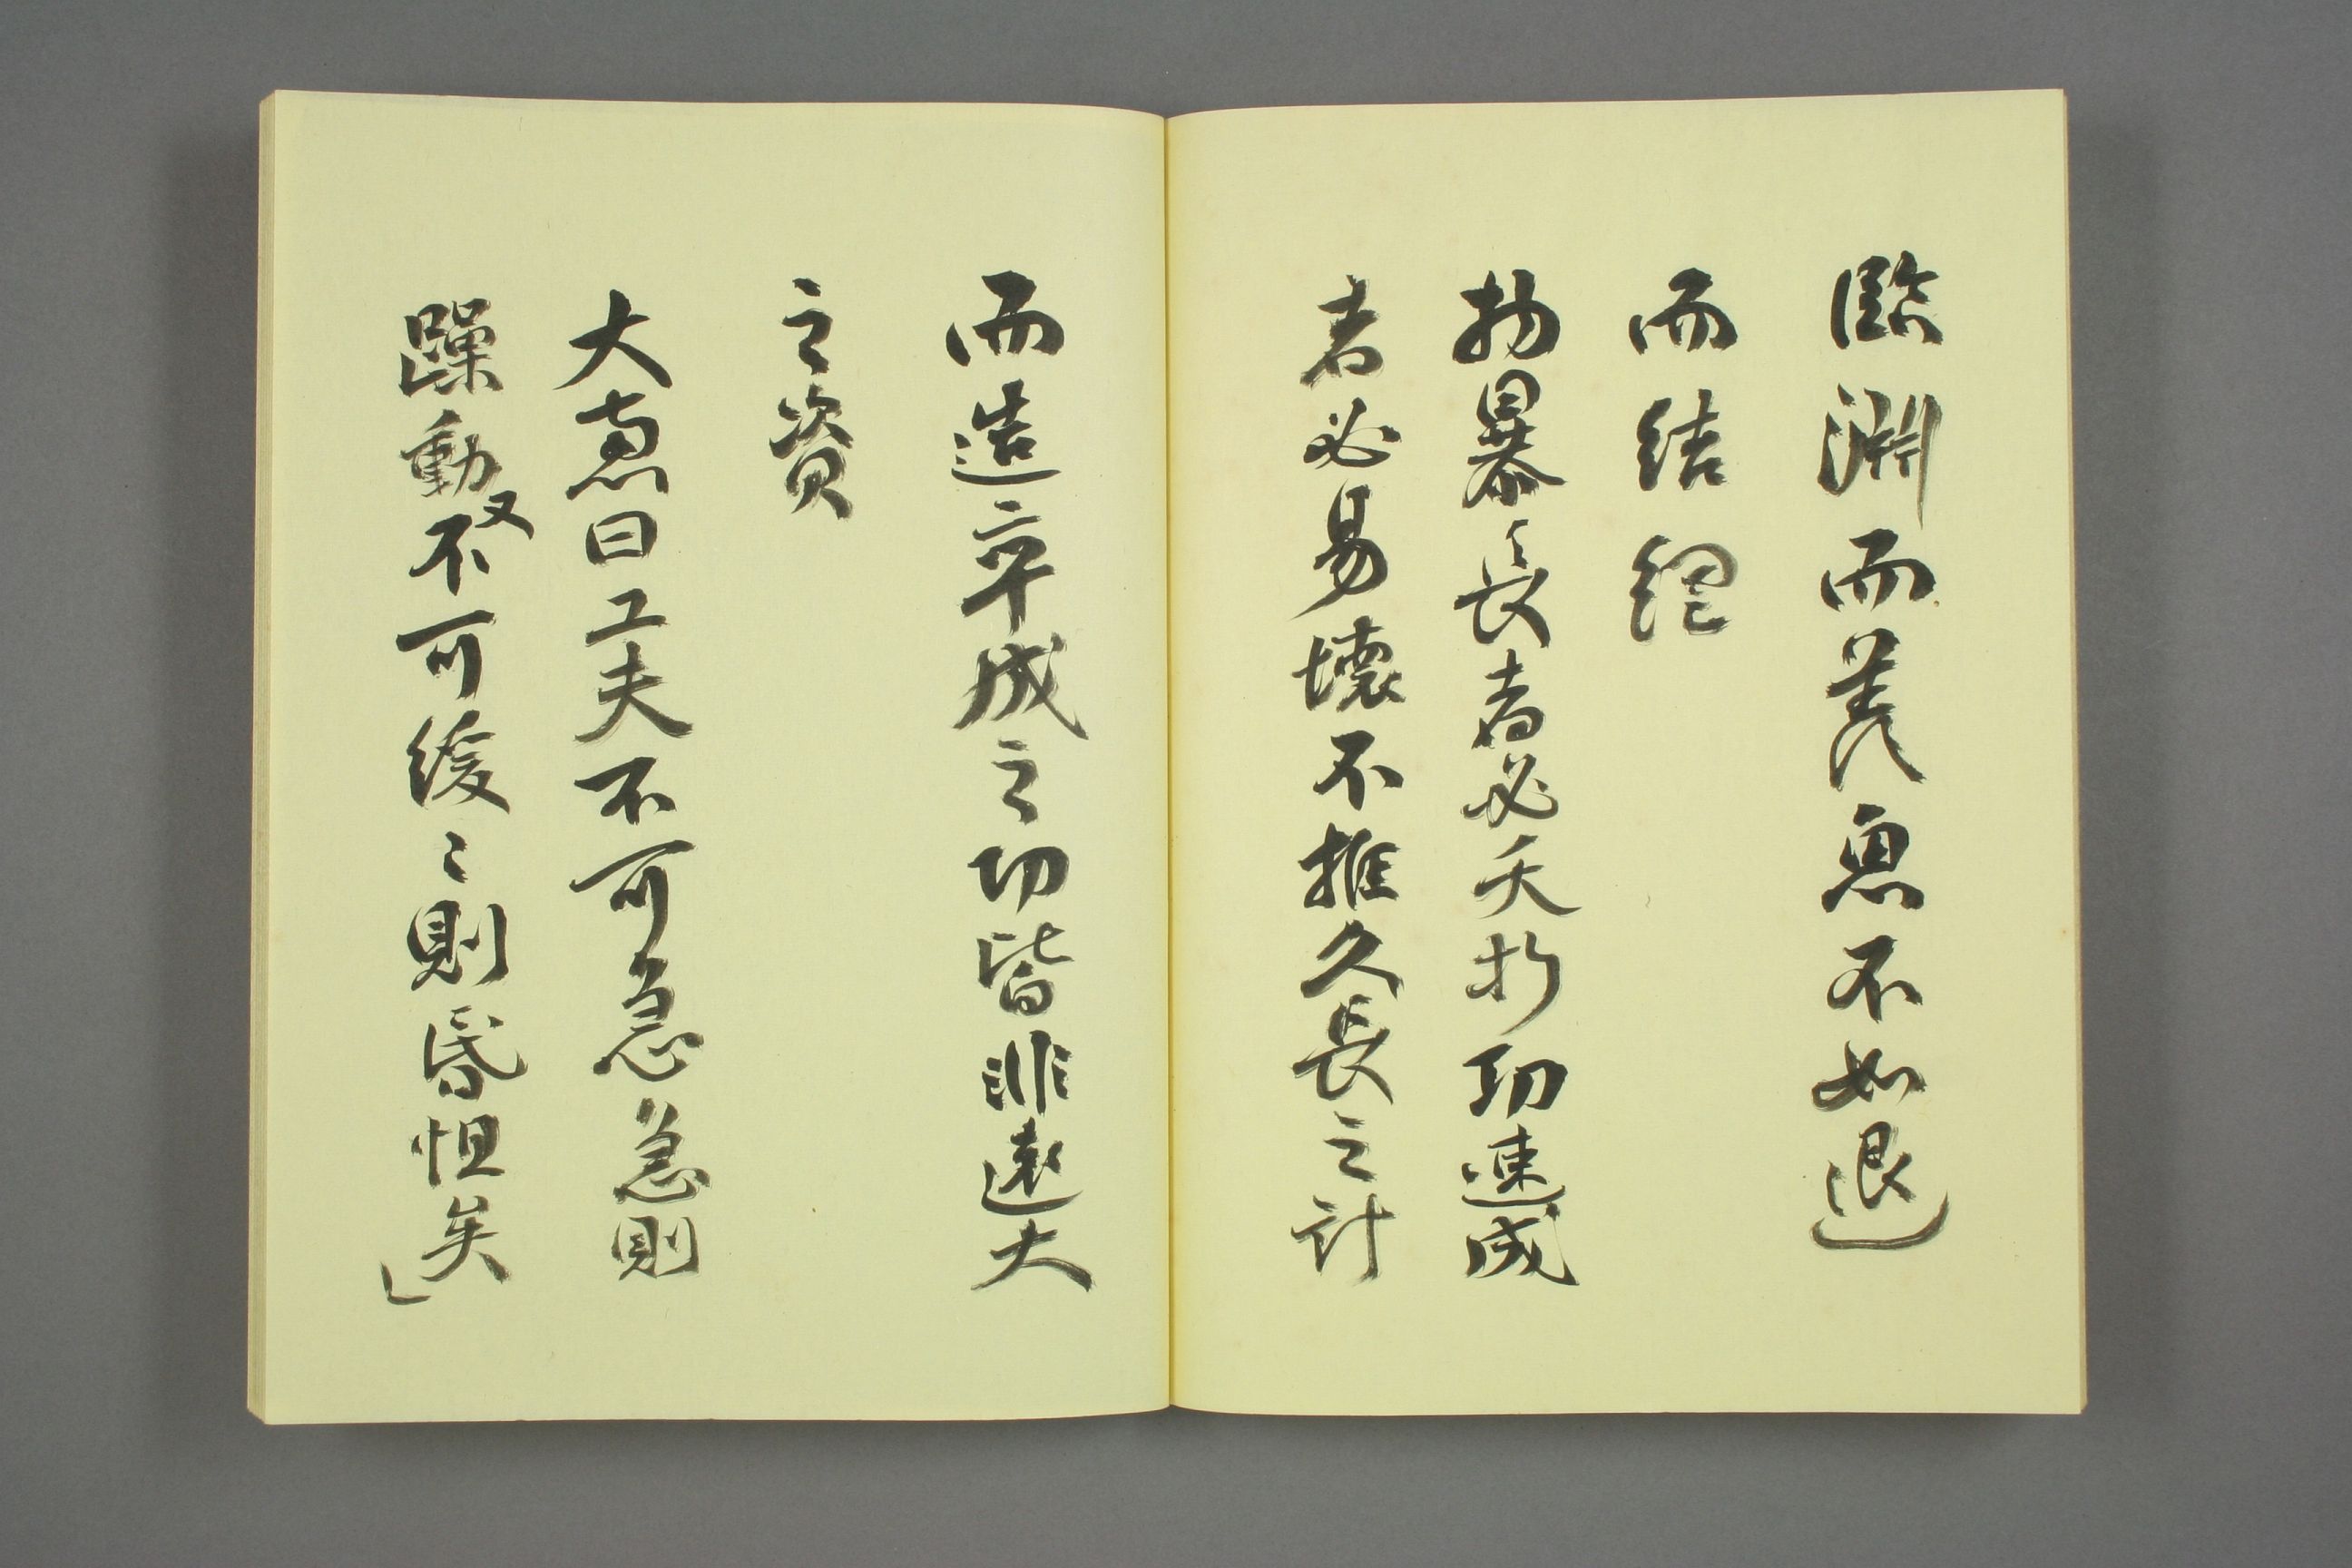 臨淵而羨魚不如退
而結網
物暴長者必夭折功速成
者必易壞不推久長之計
而造卒成之功皆非遠大
之資
大恵曰工夫不可急急則
躁動又不可緩〻則昏怛矣」